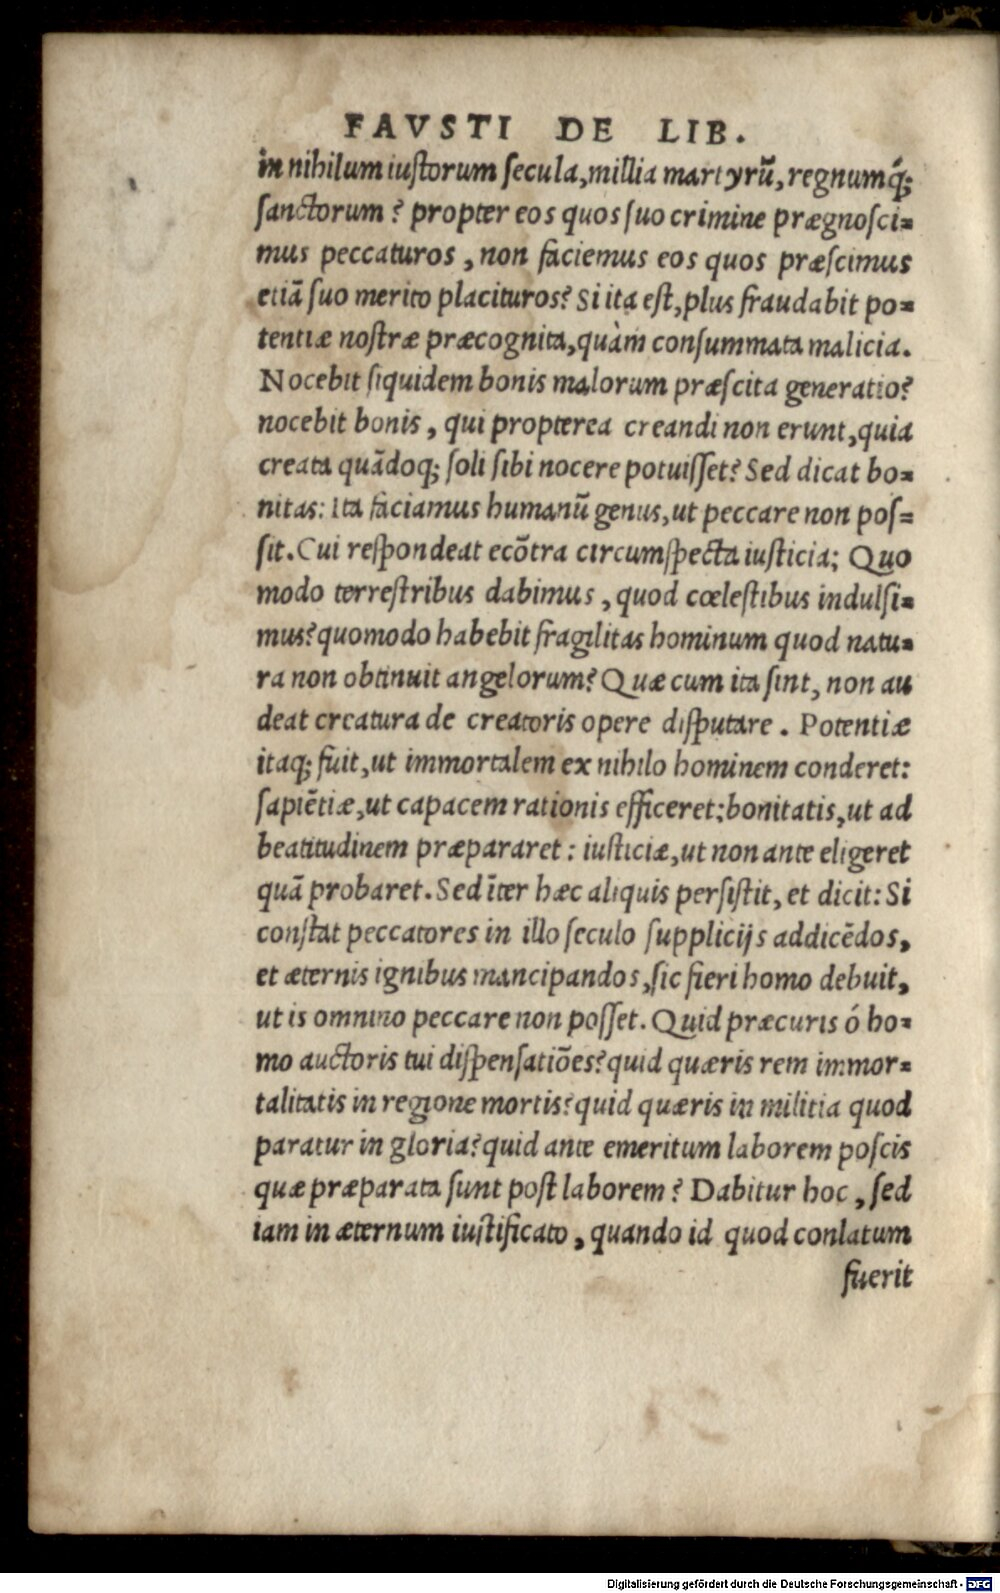 FAVSTI DE LIB.
in nihilum iustorum secula, millia martyrũ, regnumq́;
sanctorum? propter eos quos suo crimine prægnosci=
mus peccaturos, non faciemus eos quos præscimus
etiã suo merito placituros? Si ita est, plus fraudabit po=
tentiæ nostræ præcognita, quàm consummata malicia.
Nocebit siquidem bonis malorum præscita generatio?
nocebit bonis, qui propterea creandi non erunt, quia
creata quãdoq; soli sibi nocere potuisset? Sed dicat bo=
nitas: Ita faciamus humanũ genus, ut peccare non pos=
sit. Cui respondeat ecõtra circumspecta iusticia; Quo
modo terrestribus dabimus, quod cœlestibus indulsi=
mus? quomodo habebit fragilitas hominum quod natu=
ra non obtinuit angelorum? Quæ cum ita sint, non au
deat creatura de creatoris opere disputare. Potentiæ
itaq; fuit, ut immortalem ex nihilo hominem conderet:
sapiẽtiæ, ut capacem rationis efficeret: bonitatis, ut ad
beatitudinem præpararet: iusticiæ, ut non ante eligeret
quã probaret. Sed ĩter hæc aliquis persistit, et dicit: Si
constat peccatores in illo seculo supplicijs addicẽdos,
et æternis ignibus mancipandos, sic fieri homo debuit,
ut is omnino peccare non posset. Quid præcuris ó ho=
mo auctoris tui dispensatiões? quid quæris rem immor=
talitatis in regione mortis? quid quæris in militia quod
paratur in gloria? quid ante emeritum laborem poscis
quæ præparata sunt post laborem? Dabitur hoc, sed
iam in æternum iustificato, quando id quod conlatum
fuerit
Digitalisierung gefördert durch die Deutsche Forschungsgemeinschaft - DFG